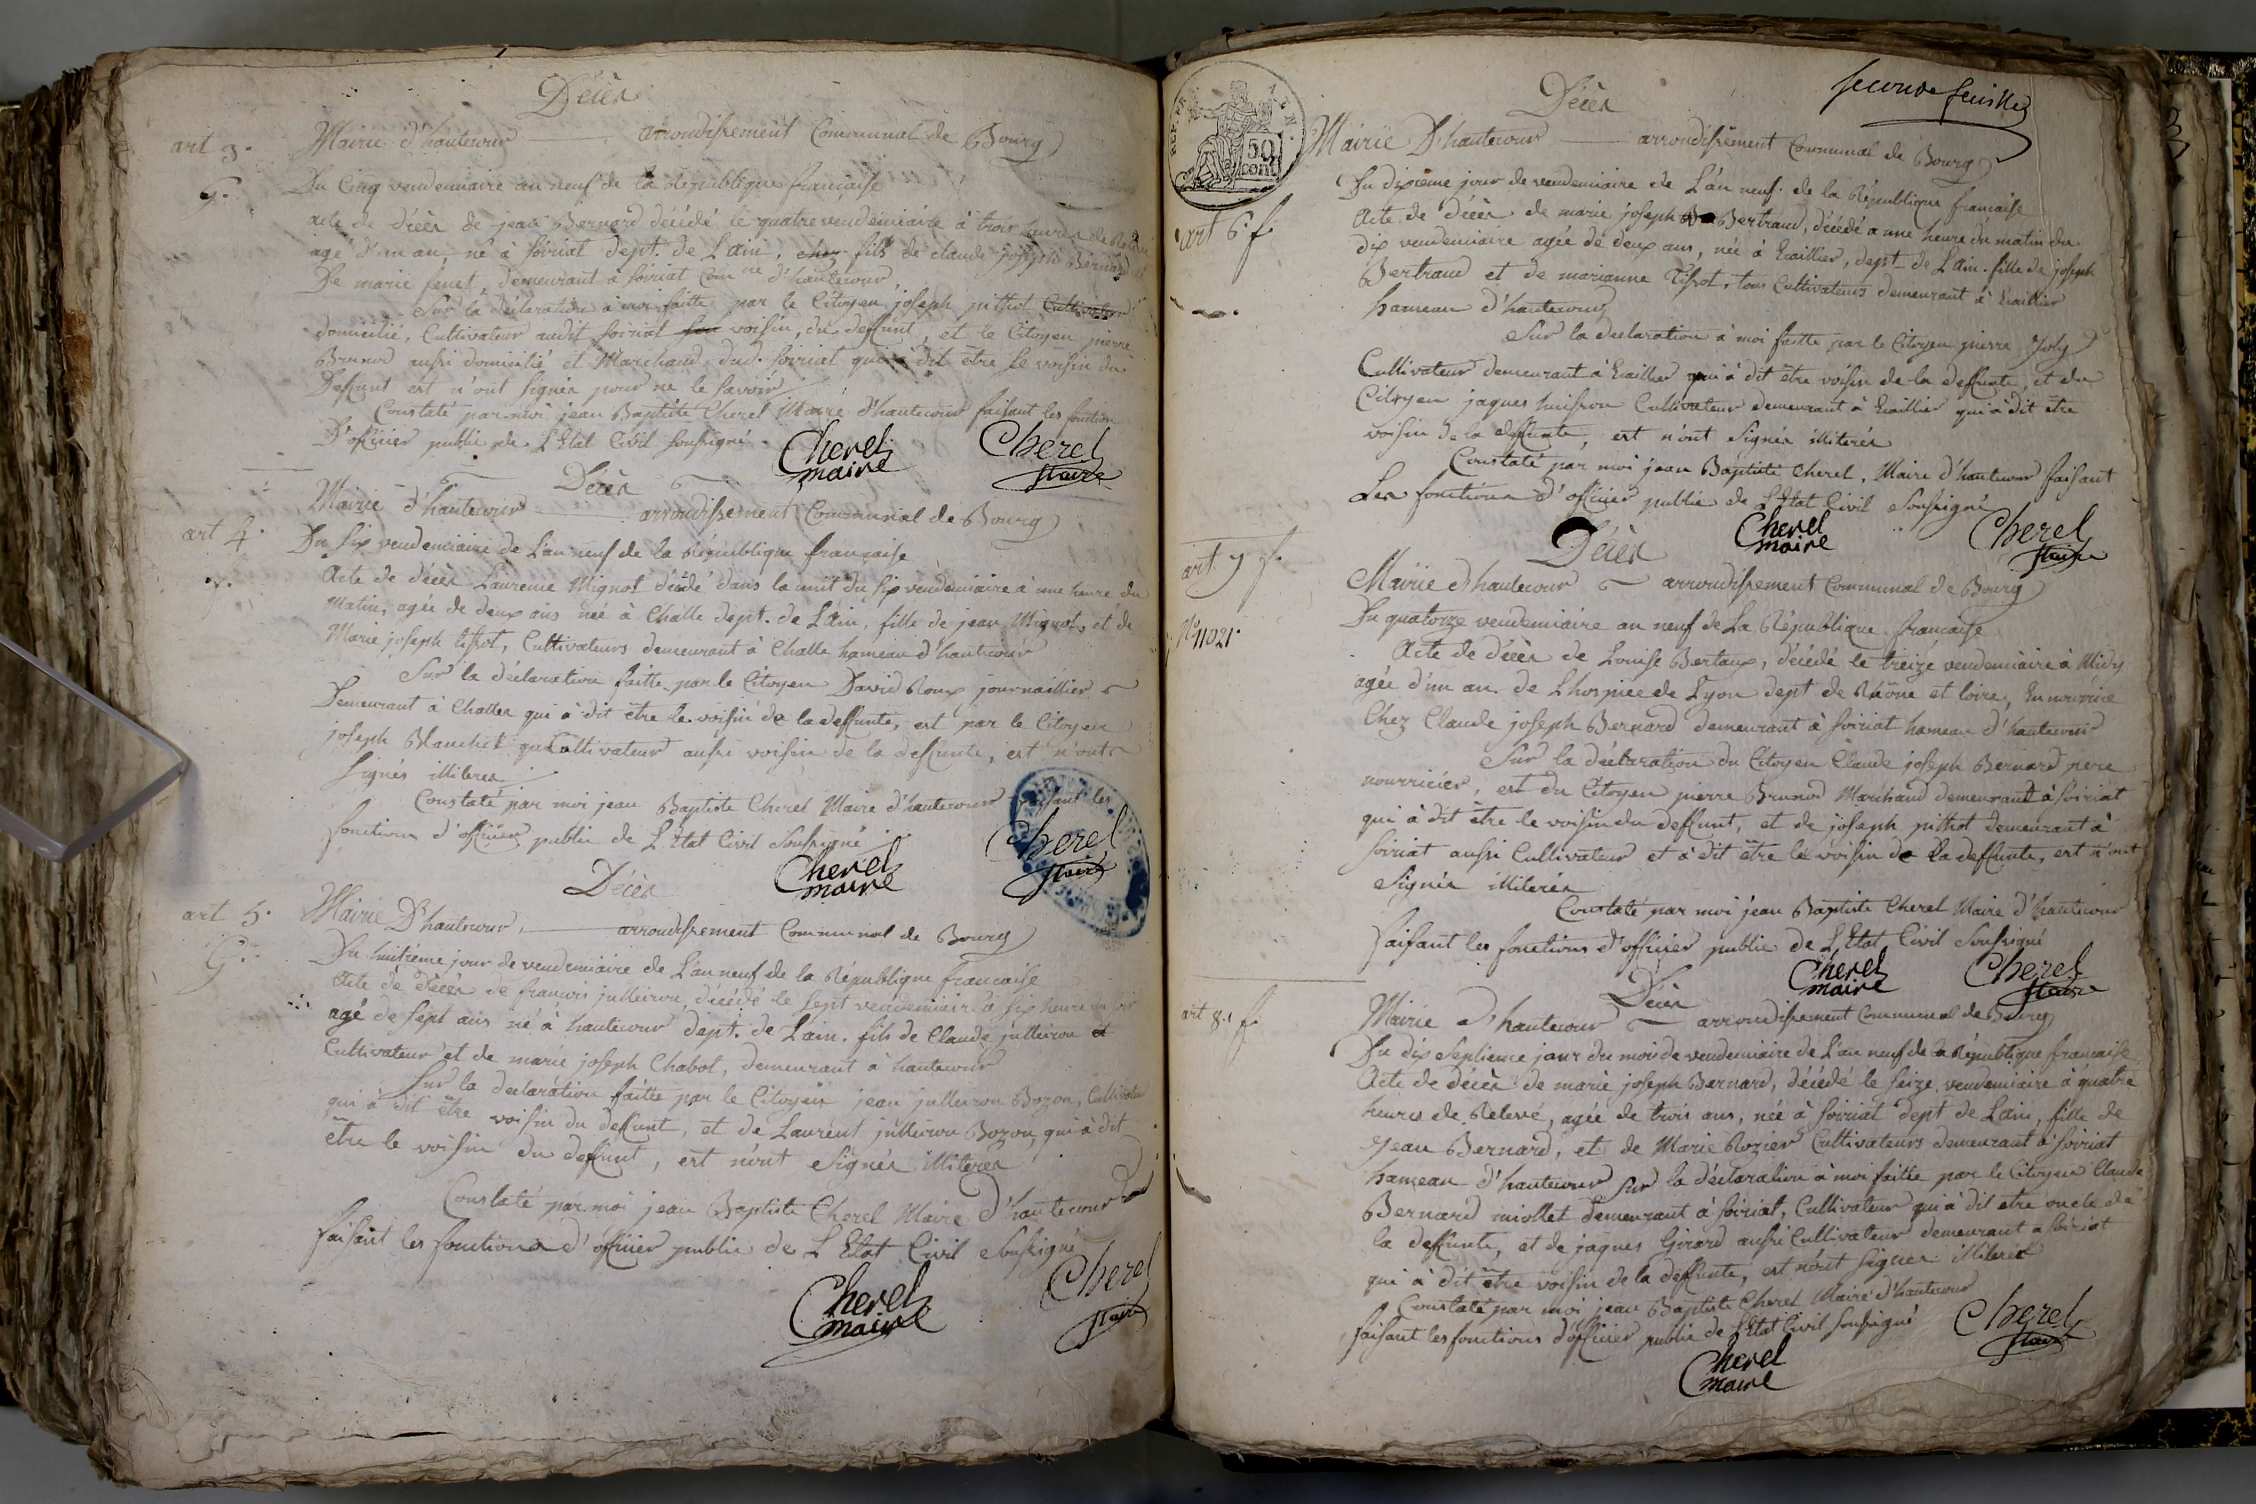 Décès
art 3.
Mairie d'hautecour arrondissement Communal de Bourg
g.
Du Cinq vendemiaire an neuf de la République française
acte de décès de jean Bernard décédé le quatre vendemiaire à trois heures de
agé d'un an, né à soiriat dept. de L'ain, chez fils de claude joseph Bernard et
De marie fenet, demeurant à soiriat com.ne d'hautecour
Sur la déclaration à moi faitte par le Citoyen joseph pithot Cultivateur
domicilié, Cultivateur audit soiriat voisin du deffunt, et le Citoyen pierre
Brunod aussi domicilié et Marchand dud. soiriat qui à dit être le voisin du
Deffunt est n'ont signés pour ne le savoir
Constaté par moi jean Baptiste Cherel Maire d'hautecour faisant les fonction
D'officier public de L'Etat Civil soussigné
Cherel maire Cherel Maire
Décès
Mairie d'hautecour arrondissement Communal de Bourg
art 4.
Du six vendemiaire de L'an neuf de la République française
Acte de décès Laurence Mignot décédé dans la nuit du six vendemiaire à une heure du
Matin, agée de deux ans née à Challe dept. de L'ain, fille de jean Mignot, et de
Marie joseph tissot, Cultivateurs demeurant à Challe hameau d'hautecour
Sur la déclaration faitte par le Citoyen David Roux journaillier
Demeurant à Challes qui à dit être le voisin de la deffunte, est par le Citoyen
joseph Blanchet Cultivateur aussi voisin de la deffunte, est n'ont
signés illiteres
Constaté par moi jean Baptiste Cherel Maire d'hautecour faisant les
fonctions d'officier public de L'Etat Civil soussigné
Cherel maire Cherel Maire
Décès
art 5.
Mairie D'hautecour, arrondissement Communal de Bourg
G.
Du huitième jour de vendemiaire de L'an neuf de la République francaise
Acte de décès de francois jullieron, décédé le sept vendemiaire à six heure du soir
agé de sept ans né à hautecour dept. de L'ain. fils de Claude jullieron et
Cultivateur et de marie joseph Chabot, demeurant à hautecour
Sur la declaration faitte par le Citoyen jean jullieron Bozon, Cultivateur
qui à dit être voisin du deffunt, et de Laurent jullieron Bozon, qui à dit
être le voisin du deffunt, est n'ont signés illiteres
Constaté par moi jean Baptiste Cherel Maire d'hautecour
faisant les fonctions d'officier public de L'Etat Civil soussigné
Cherel maire Cherel Maire
seconde feuille
Décès
REP. FRA.
50 cent
Mairie D'hautecour arrondissement Communal de Bourg
Du dixieme jour de vendemiaire de L'an neuf de la République francaise
art 6. f.
Acte de décès de marie joseph Bertrand, décédé a une heure du matin du
dix vendemiaire agée de deux ans, née à Eaillier, dept. de L'ain. fille de joseph
Bertrand et de marianne Tissot, tous Cultivateurs demeurant à Eaillier
hameau d'hautecour
Sur la declaration à moi faitte par le Citoyen pierre Joly
Cultivateur demeurant à Eaillier qui à dit être voisin de la deffunte, et du
Citoyen jaques huisson Cultivateur demeurant à Eaillier qui à dit être
voisin de la deffunte, est n'ont signés illiterés
Constaté par moi jean Baptiste Cherel, Maire d'hautecour faisant
Les fonctions d'officier public de L'Etat Civil soussigné
Cherel maire Cherel Maire
Décès
art. 7 f.
Mairie d'hautecour arrondissement Communal de Bourg
Du quatorze vendemiaire an neuf de La République francaise
No. 11021.
Acte de décès de Louise Bertaux, décédé le treize vendemiaire à Midy
agée d'un an. de L'hospice de Lyon dept de Rhône et loire, En nourrice
Chez Claude joseph Bernard demeurant à soiriat hameau d'hautecour
Sur la déclaration du Citoyen Claude joseph Bernard pere
nourricier, est du Citoyen pierre Brunod Marchand demeurant à soiriat
qui à dit être le voisin du deffunt, et de joseph pithot demeurant à
soiriat aussi Cultivateur et à dit être le voisin de la deffunte, est n'ont
signés illiterés
Constaté par moi jean Baptiste Cherel Maire d'hautecour
faisant les fonctions d'officier public de L'Etat Civil soussigné
Cherel maire Cherel Maire
Décès
art 8. f.
Mairie d'hautecour arrondissement Communal de Bourg
Du dix septieme jour du mois de vendemiaire de L'an neuf de la République francaise
Acte de décès de marie joseph Bernard, décédé le seize vendemiaire à quatre
heures de Relevé, agée de trois ans, née à soiriat dept de L'ain, fille de
Jean Bernard, et de Marie Rozier Cultivateurs demeurant à soiriat
hameau d'hautecour sur la déclaration à moi faitte par le Citoyen Claude
Bernard miollet demeurant à soiriat, Cultivateur qui à dit etre oncle de
la deffunte, et de jaques Girard aussi Cultivateur demeurant a soiriat
qui à dit être voisin de la deffunte, est n'ont signes illiteres
Constaté par moi jean Baptiste Cherel Maire d'hautecour
faisant les fonctions d'officier public de L'Etat Civil soussigné
Cherel maire Cherel Maire